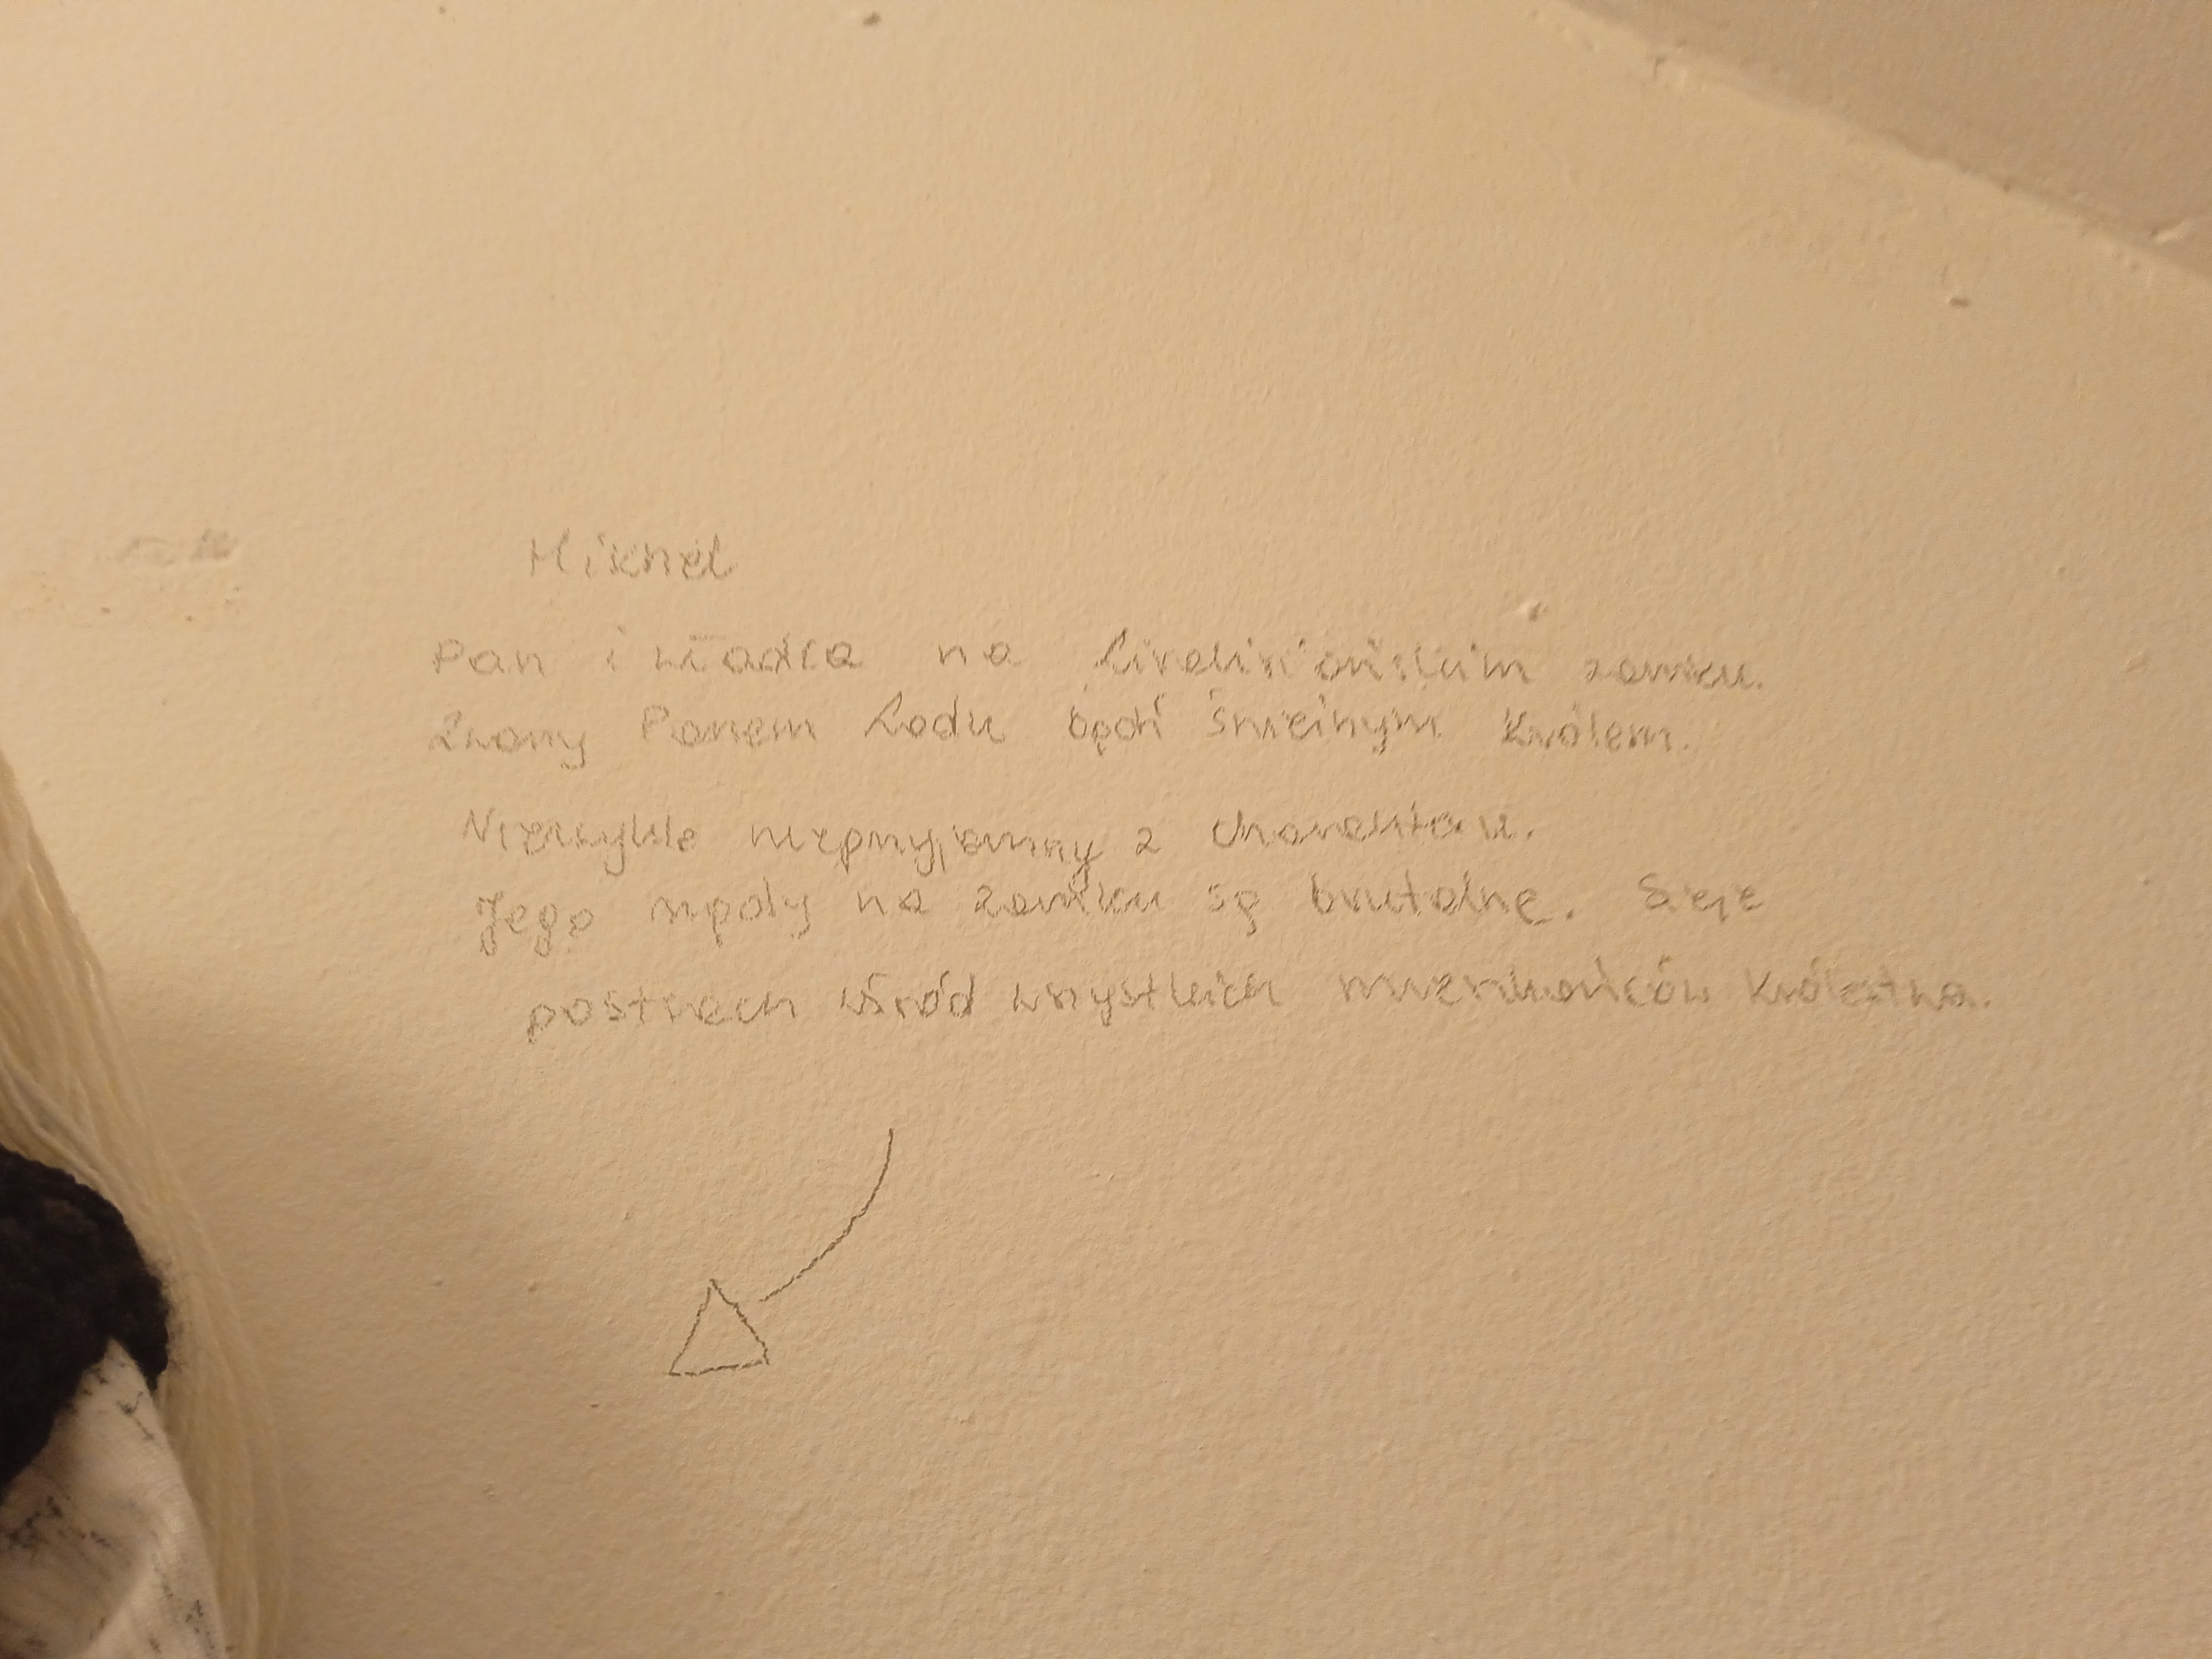 Mikael
Pan i władca na zamku.
Znany Panem Lodu bądź Śnieżnym Królem.
Niezwykle nieprzyjemny z charakteru.
Jego rządy na zamku są brutalne. Sieje
postrach wśród wszystkich mieszkańców królestwa.